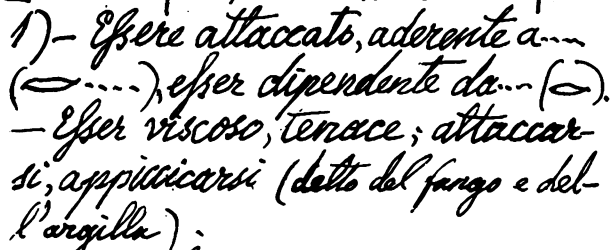 1) – Eſsere attaccato, aderente a....
(⁠....), eſser dipendente da... ( ).
– Eſser viscoso, tenace; attaccar-
si, appiccicarsi (detto del fango e del-
l'argilla);